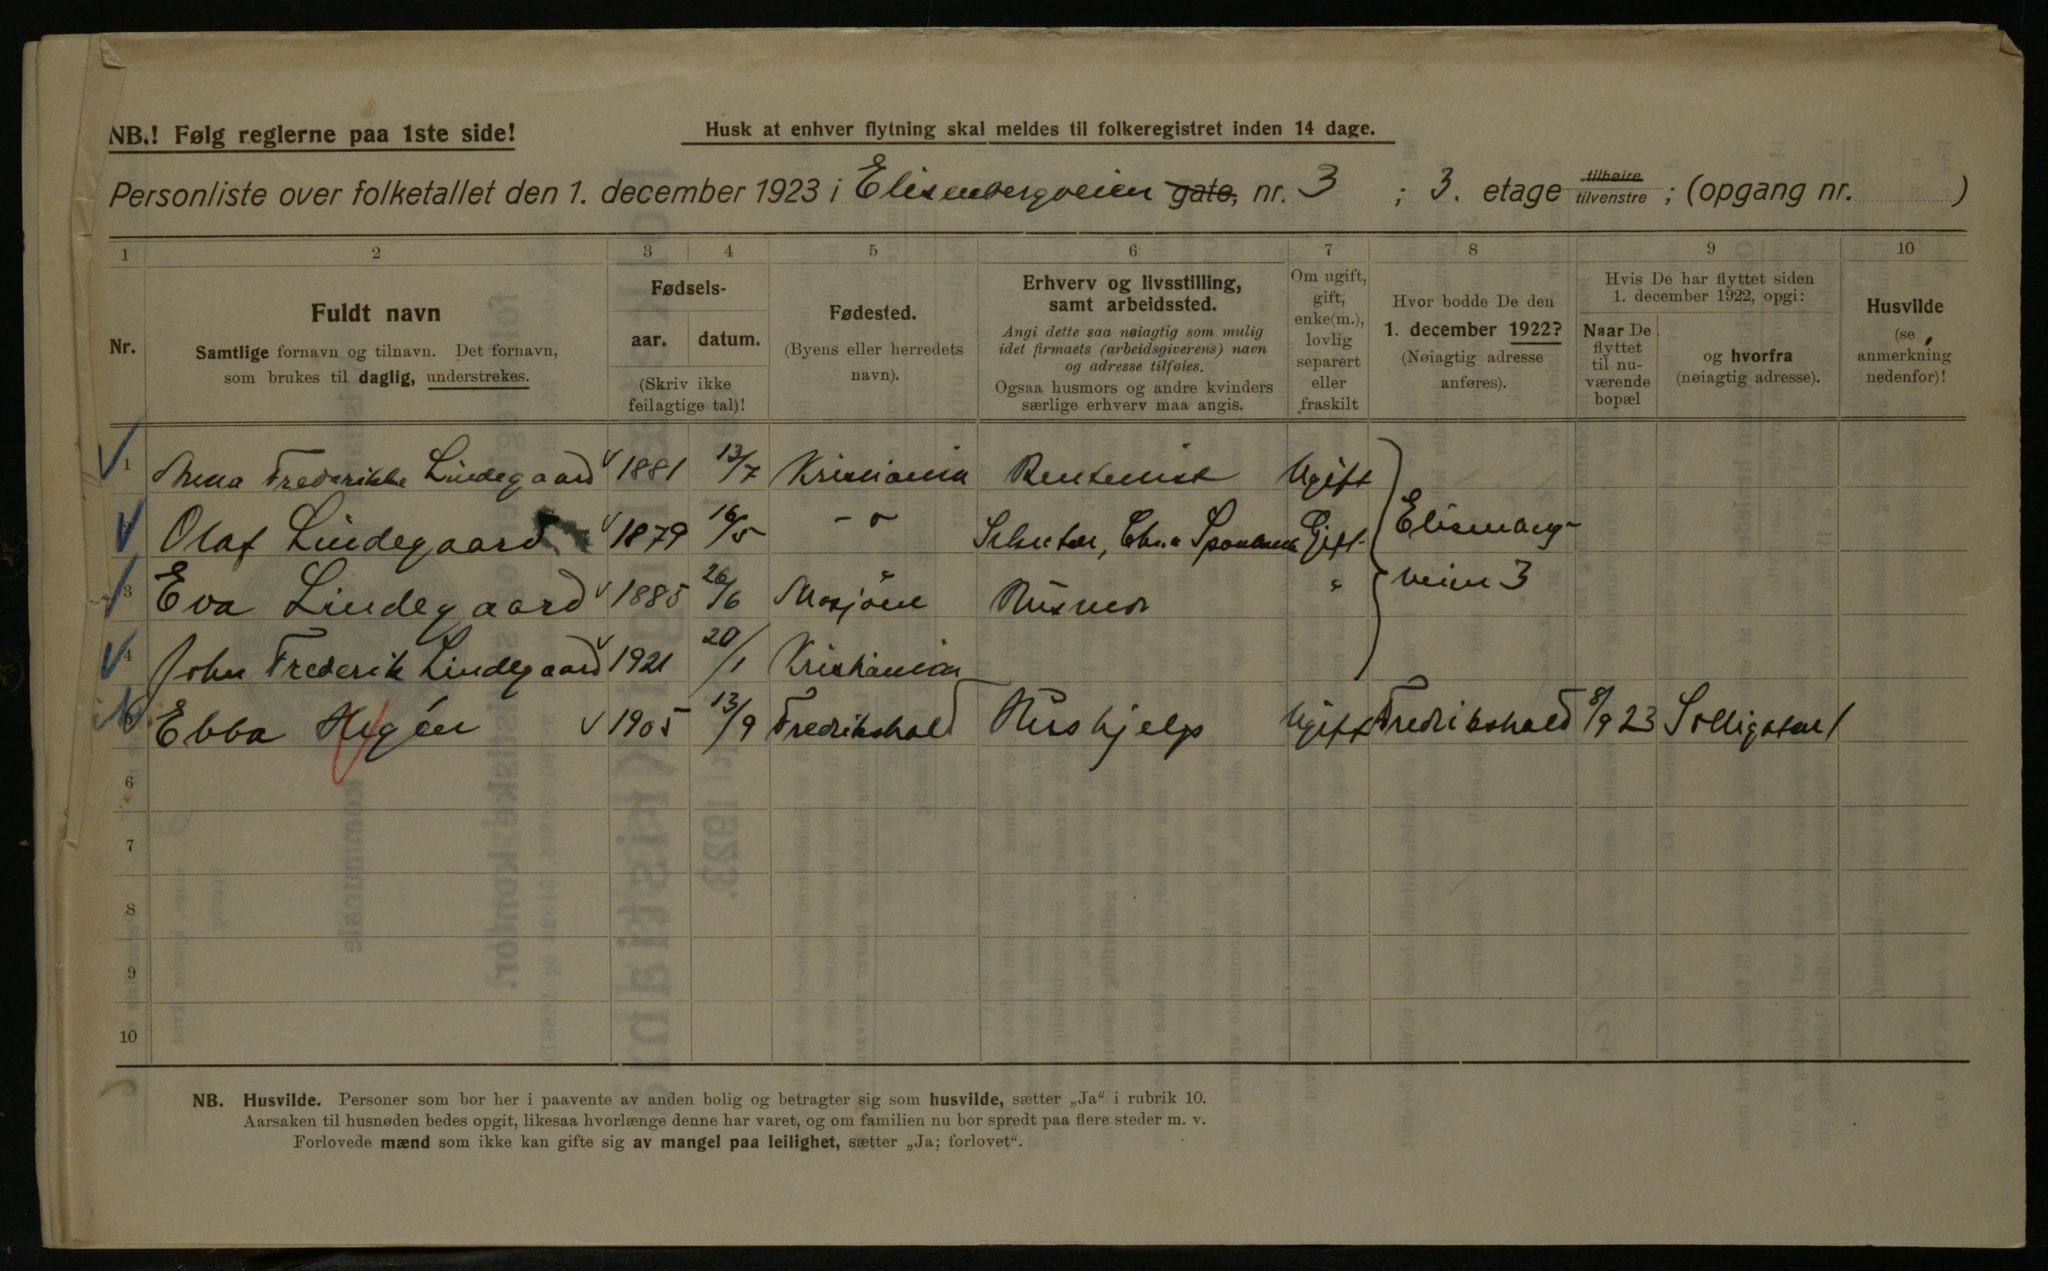 NB.! Følg reglerne paa 1ste side!
Husk at enhver flytning skal meldes til folkeregistret inden 14 dage.
Personliste over folketallet den 1. december 1923 i Elisenbergveien gate, nr. 3 ; 3. etage tilhøire tilvenstre ; (opgang nr. )
1 2 3 4 5 6 7 8 9 10
Nr.
Fuldt navn
Samtlige fornavn og tilnavn. Det fornavn,
som brukes til daglig, understrekes.
Fødsels-
aar. datum.
(Skriv ikke
feilagtige tal)!
Fødested.
(Byens eller herredets
navn).
Erhverv og livsstilling,
samt arbeidssted.
Angi dette saa nøiagtig som mulig
idet firmaets (arbeidsgiverens) navn
og adresse tilføies.
Ogsaa husmors og andre kvinders
særlige erhverv maa angis.
Om ugift,
gift,
enke(m.),
lovlig
separert
eller
fraskilt
Hvor bodde De den
1. december 1922?
(Nøiagtig adresse
anføres).
Hvis De har flyttet siden
1. december 1922, opgi:
Naar De
flyttet
til nu-
værende
bopæl
og hvorfra
(nøiagtig adresse).
Husvilde
(se
anmerkning
nedenfor)!
1 Anna Frederikke Lindegaard 1881 13/7 Kristiania Rentenist Ugift
Olaf Lindegaard 1879 16/5 -"- Gift Elisenberg-
3 Eva Lindegaard 1885 26/6 Mosjøen Husmor " veien 3
4 John Frederik Lindegaard 1921 20/1 Kristiania
5 Ebba 1905 13/9 Fredrikshald Hushjelp Ugift Fredrikshald 8/9 23 Solligaten 1
6
7
8
9
10
NB. Husvilde. Personer som bor her i paavente av anden bolig og betragter sig som husvilde, sætter „Ja“ i rubrik 10.
Aarsaken til husnøden bedes opgit, likesaa hvorlænge denne har varet, og om familien nu bor spredt paa flere steder m. v.
Forlovede mænd som ikke kan gifte sig av mangel paa leilighet, sætter „Ja; forlovet“.